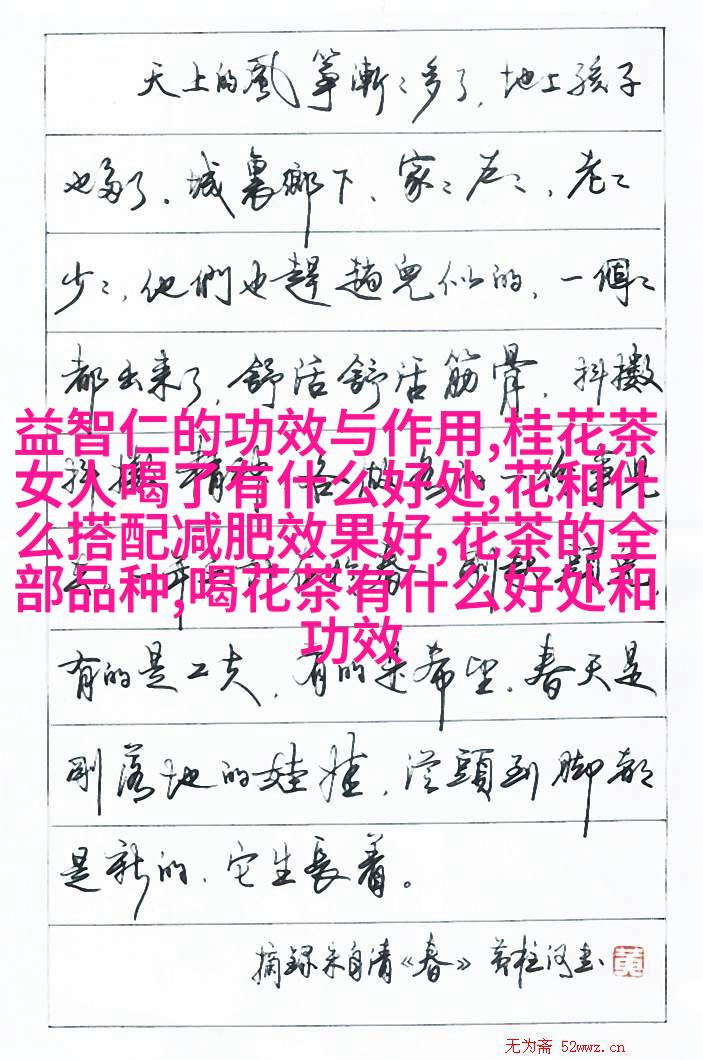 天上的風箏漸〻多了，地上孩子
也多了。城裏鄉下，家〻户〻，老〻
少〻，他們也趕趟兒似的，一個〻
都出来了。舒活舒活筋骨，抖擻
益智仁的功效与作用,桂花茶
女人喝了有什么好处,花和什
么搭配减肥效果好,花茶的全
部品种,喝花茶有什么好处和
功效
有的是工夫，有的是希望。春天是
剛落地的娃娃，從頭到脚都
是新的，它生長着。
摘録朱自清《春》 黄柱河書
黄
无为斋 52wwz.cn